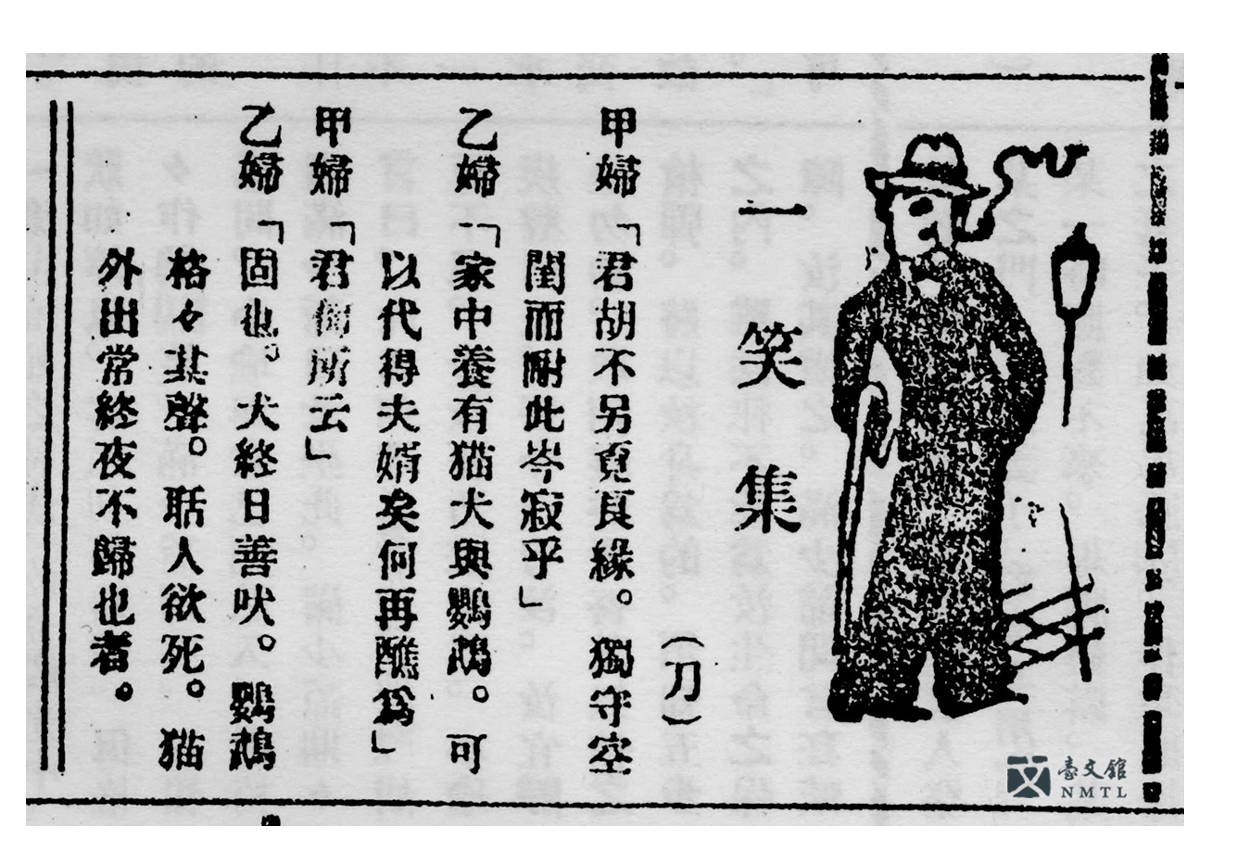 一笑集
(刀)
甲婦「君胡不另覓良緣。獨守空
閨而耐此岑寂乎」
乙婦「家中養有猫犬與鸚鵡。可
以代得夫婿矣何再醮爲」
甲婦「君何所云」
乙婦「固也。犬終日善吠。鸚鵡
格々其聲。聒人欲死。猫
外出常終夜不歸也者。
臺文館
NMTL